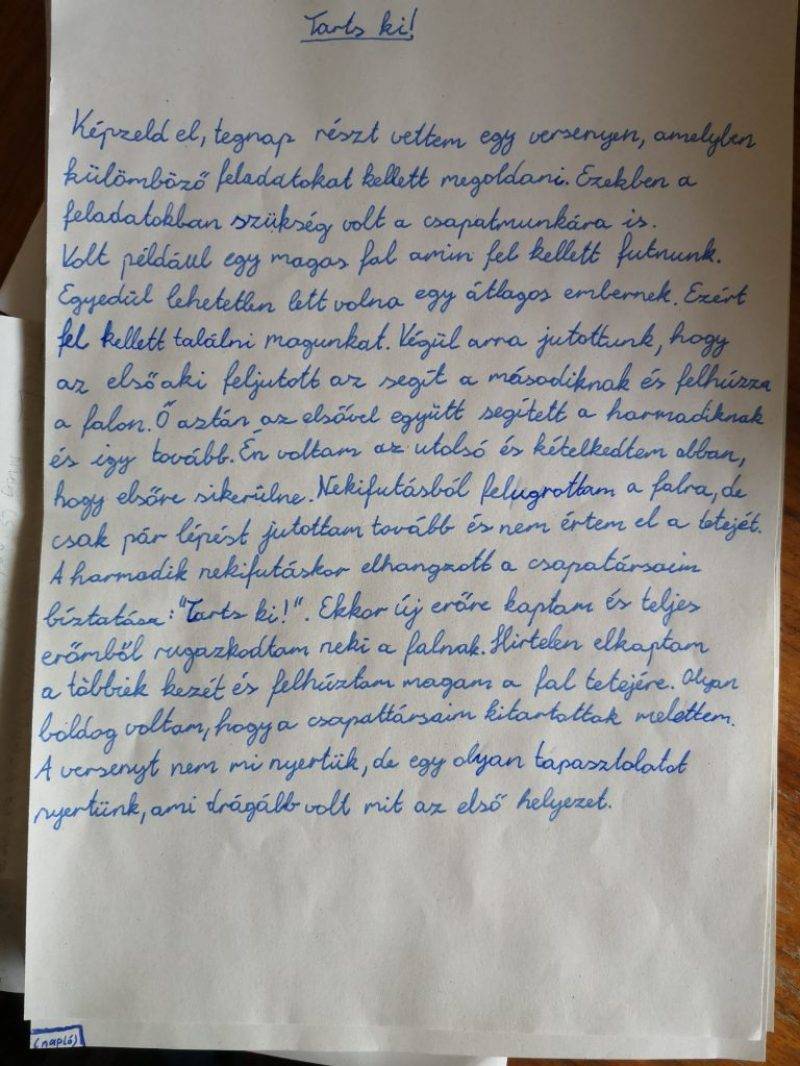 Tarts ki!
Képzeld el, tegnap részt vettem egy versenyen, amelyben
külömböző feladatokat kellett megoldani. Ezekben a
feladatokban szükség volt a csapatmunkára is.
Volt például egy magas fal amin fel kellett futnunk.
Egyedül lehetetlen lett volna egy átlagos embernek. Ezért
fel kellett találni magunkat. Végül arra jutottunk, hogy
az első aki feljutott az segít a másodiknak és felhúzza
a falon. Ő aztán az elsővel együtt segített a harmadiknak
és így tovább. Én voltam az utolsó és kételkedtem abban,
hogy elsőre sikerülne. Nekifutásból felugrottam a falra, de
csak pár lépést jutottam tovább és nem értem el a tetejét.
A harmadik nekifutáskor elhangzott a csapatársaim
bíztatása: "Tarts ki!". Ekkor új erőre kaptam és teljes
erőmből rugazkodtam neki a falnak. Hirtelen elkaptam
a többiek kezét és felhúztam magam a fal tetejére. Olyan
boldog voltam, hogy a csapattársaim kitartottak melettem.
A versenyt nem mi nyertük, de egy olyan tapasztolatot
nyertünk, ami drágább volt mit az első helyezet.
(napló)